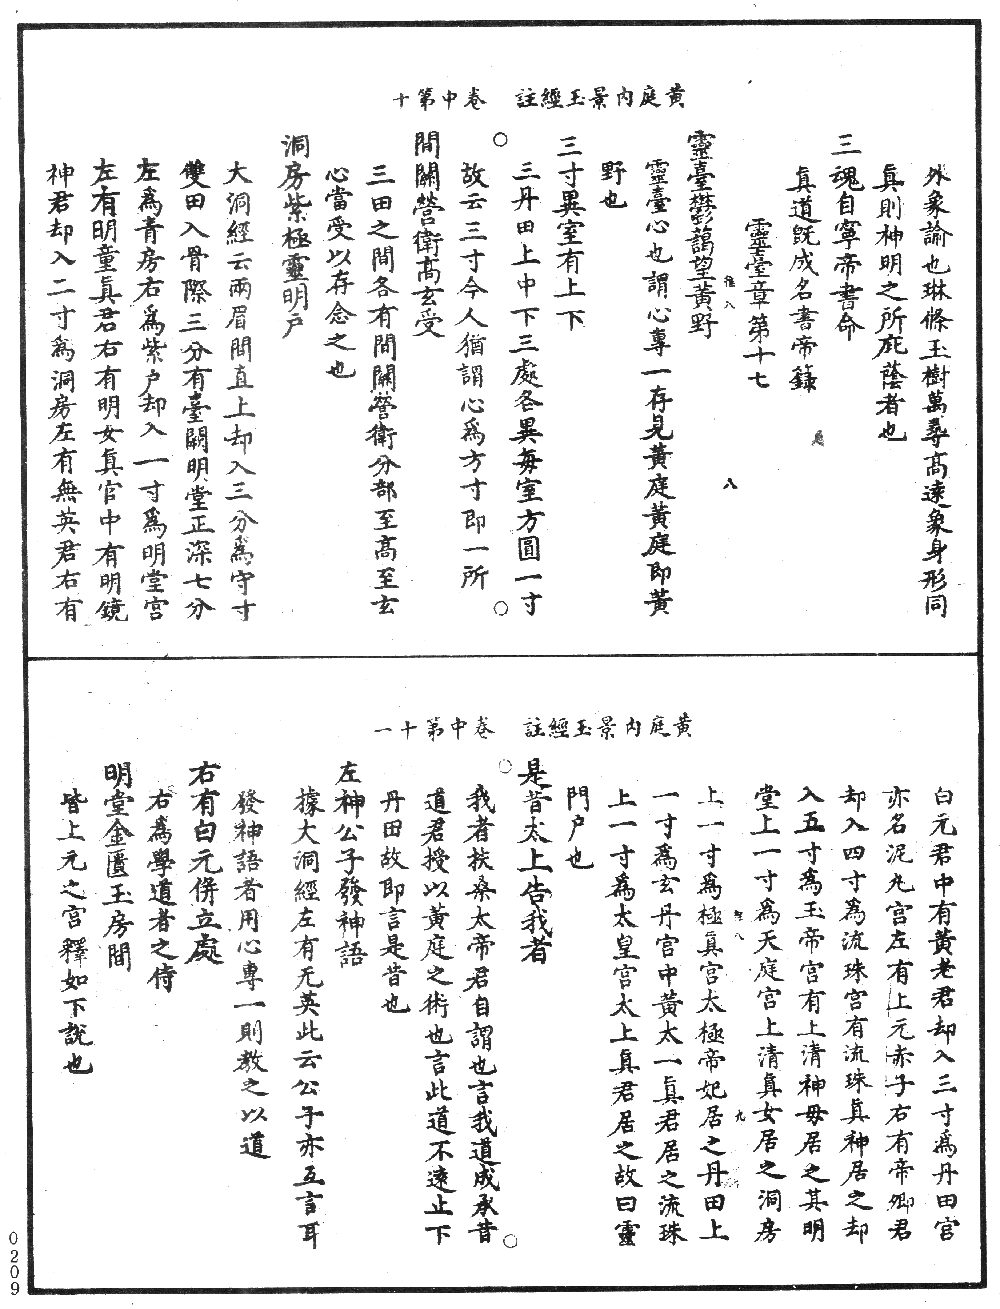 黃庭內景玉經註　卷中第十
外象諭也琳條玉樹萬尋高遠象身形同
真則神明之所庇蔭者也
三魂自寧帝書命
真道旣成名書帝籙
靈臺章第十七
靈臺鬱藹望黃野
靈臺心也謂心專一存見黃庭黃庭即黃
野也
三寸異室有上下
三丹田上中下三處各異每室方圓一寸
故云三寸今人猶謂心爲方寸即一所
間關營衛高玄受
三田之間各有間關營衛分部至高至玄
心當受以存念之也
洞房紫極靈明戶
大洞經云兩眉間直上却入三分爲守寸
雙田入骨際三分有臺闕明堂正深七分
左爲青房右爲紫戶却入一寸爲明堂宮
左有明童真君右有明女真官中有明鏡
神君却入二寸爲洞房左有無英君右有
八
黃庭內景玉經註　卷中第十一
白元君中有黃老君却入三寸爲丹田宮
亦名泥丸宮左有上元赤子右有帝卿君
却入四寸爲流珠宮有流珠真神居之却
入五寸爲玉帝宮有上清神母居之其明
堂上一寸爲天庭宮上清真女居之洞房
上一寸爲極真宮太極帝妃居之丹田上
一寸爲玄丹宮中黃太一真君居之流珠
上一寸爲太皇宮太上真君居之故曰靈
門戶也
是昔太上告我者
我者扶桑太帝君自謂也言我道成承昔
道君授以黃庭之術也言此道不遠止下
丹田故即言是昔也
左神公子發神語
據大洞經左有无英此云公子亦互言耳
發神語者用心專一則教之以道
右有白元併立處
右爲學道者之侍
明堂金匱玉房間
皆上元之宮釋如下說也
九
0209